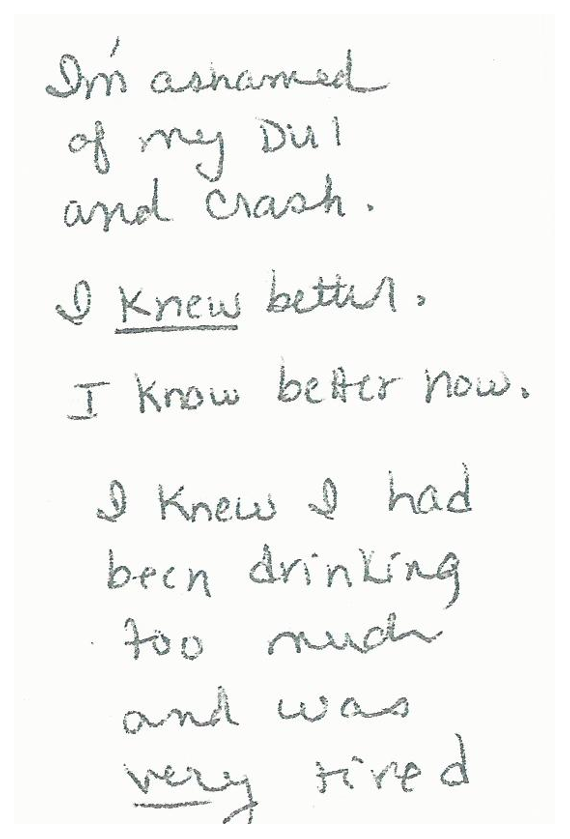 I'm ashamed
of my DUI
and crash.
I knew better.
I know better now.
I knew I had
been drinking
too much
and was
very tired